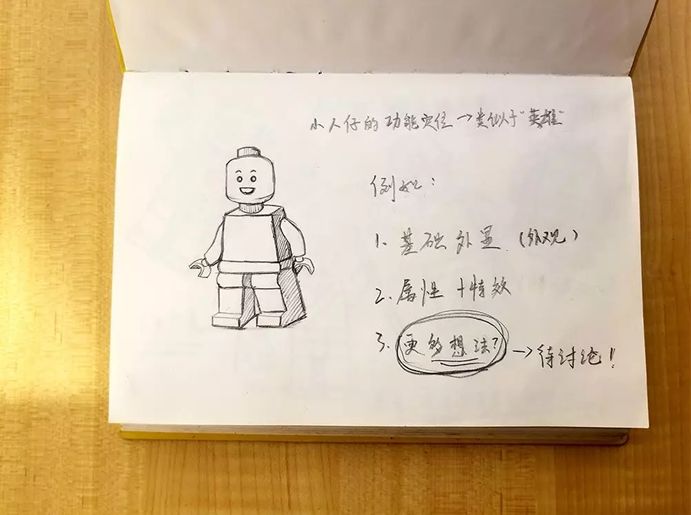 小人仔的功能定位→类似于"英雄"
例如:
1. 基础外显 (外观)
2. 属性+特效
3. 更多想法? →待讨论!